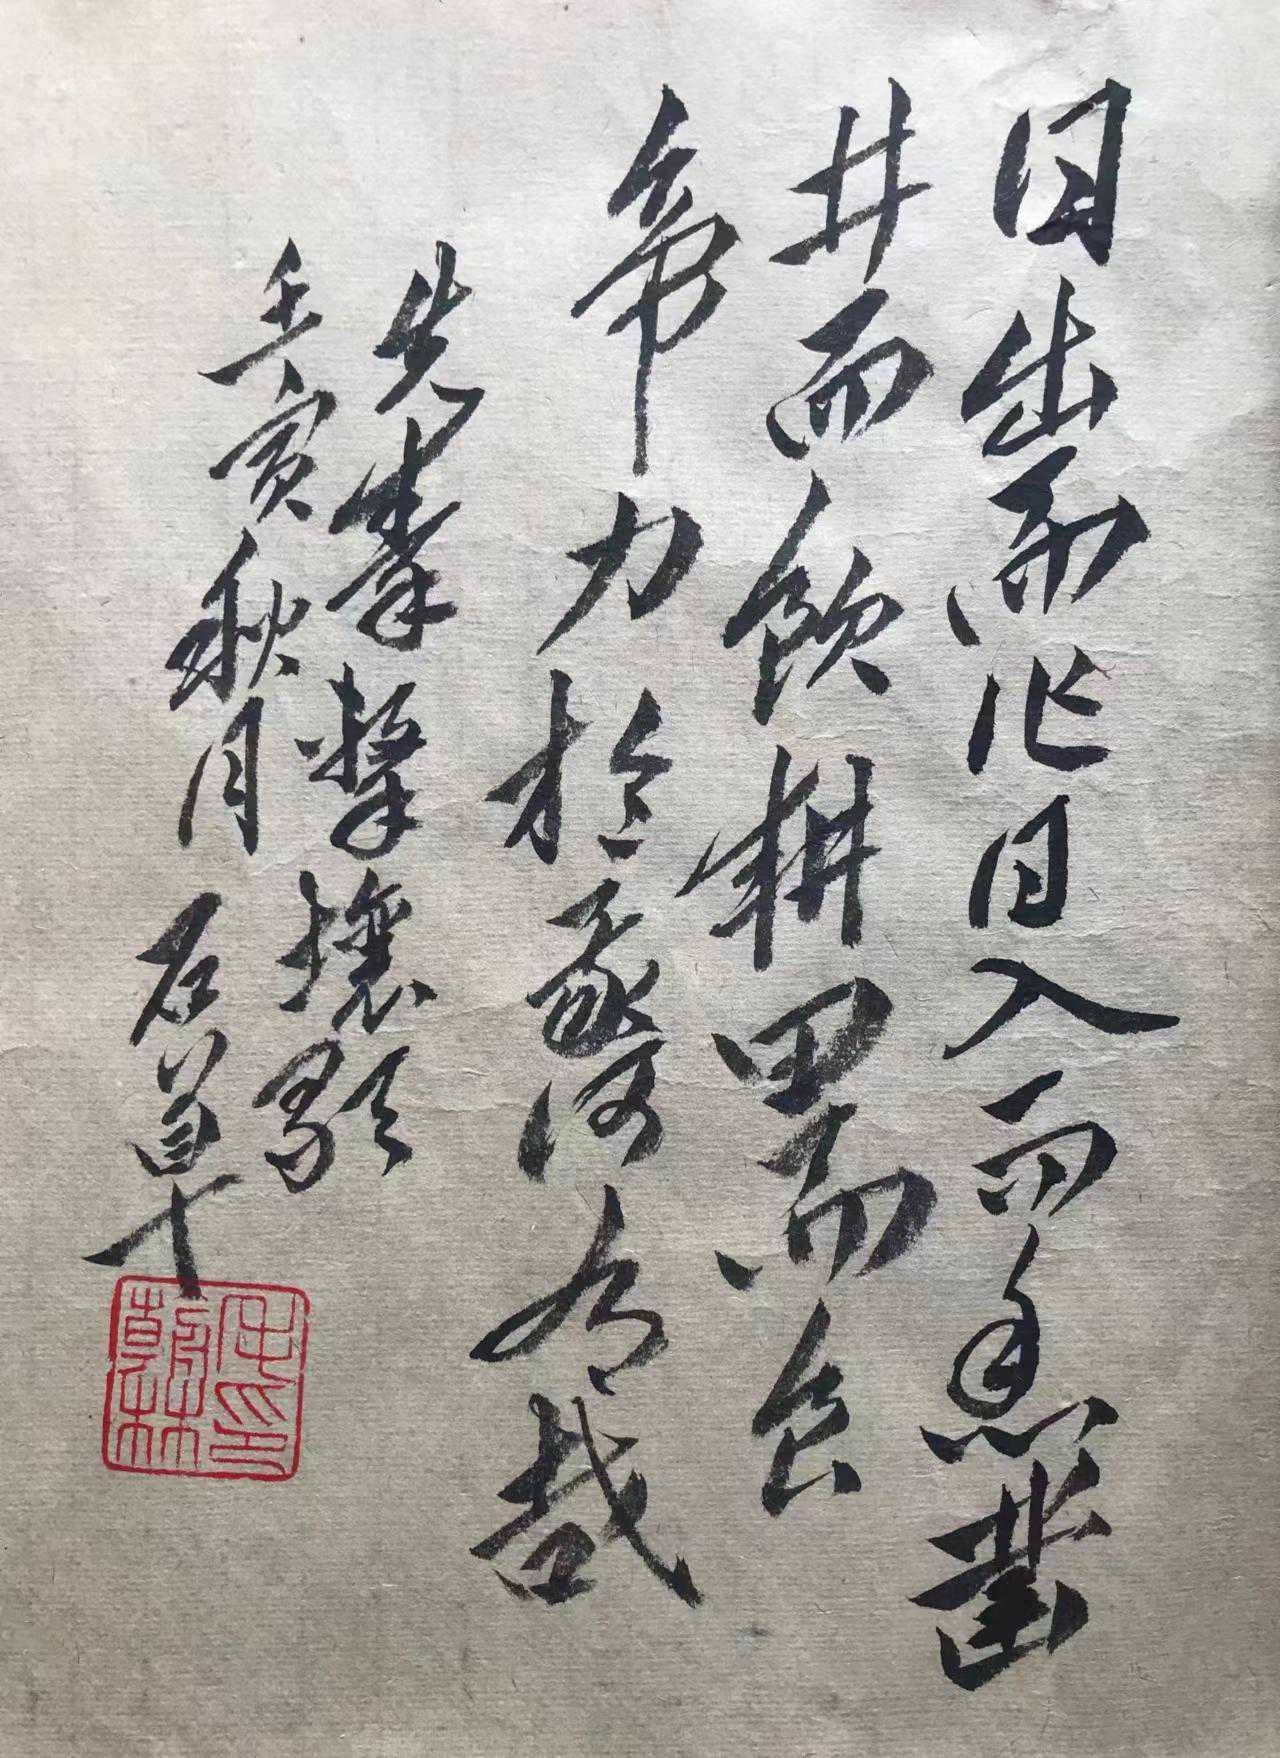 日出而作日入而息凿
井而飲耕田而食
帝力於我何有哉
先秦擊壤歌
壬寅秋月 石道草